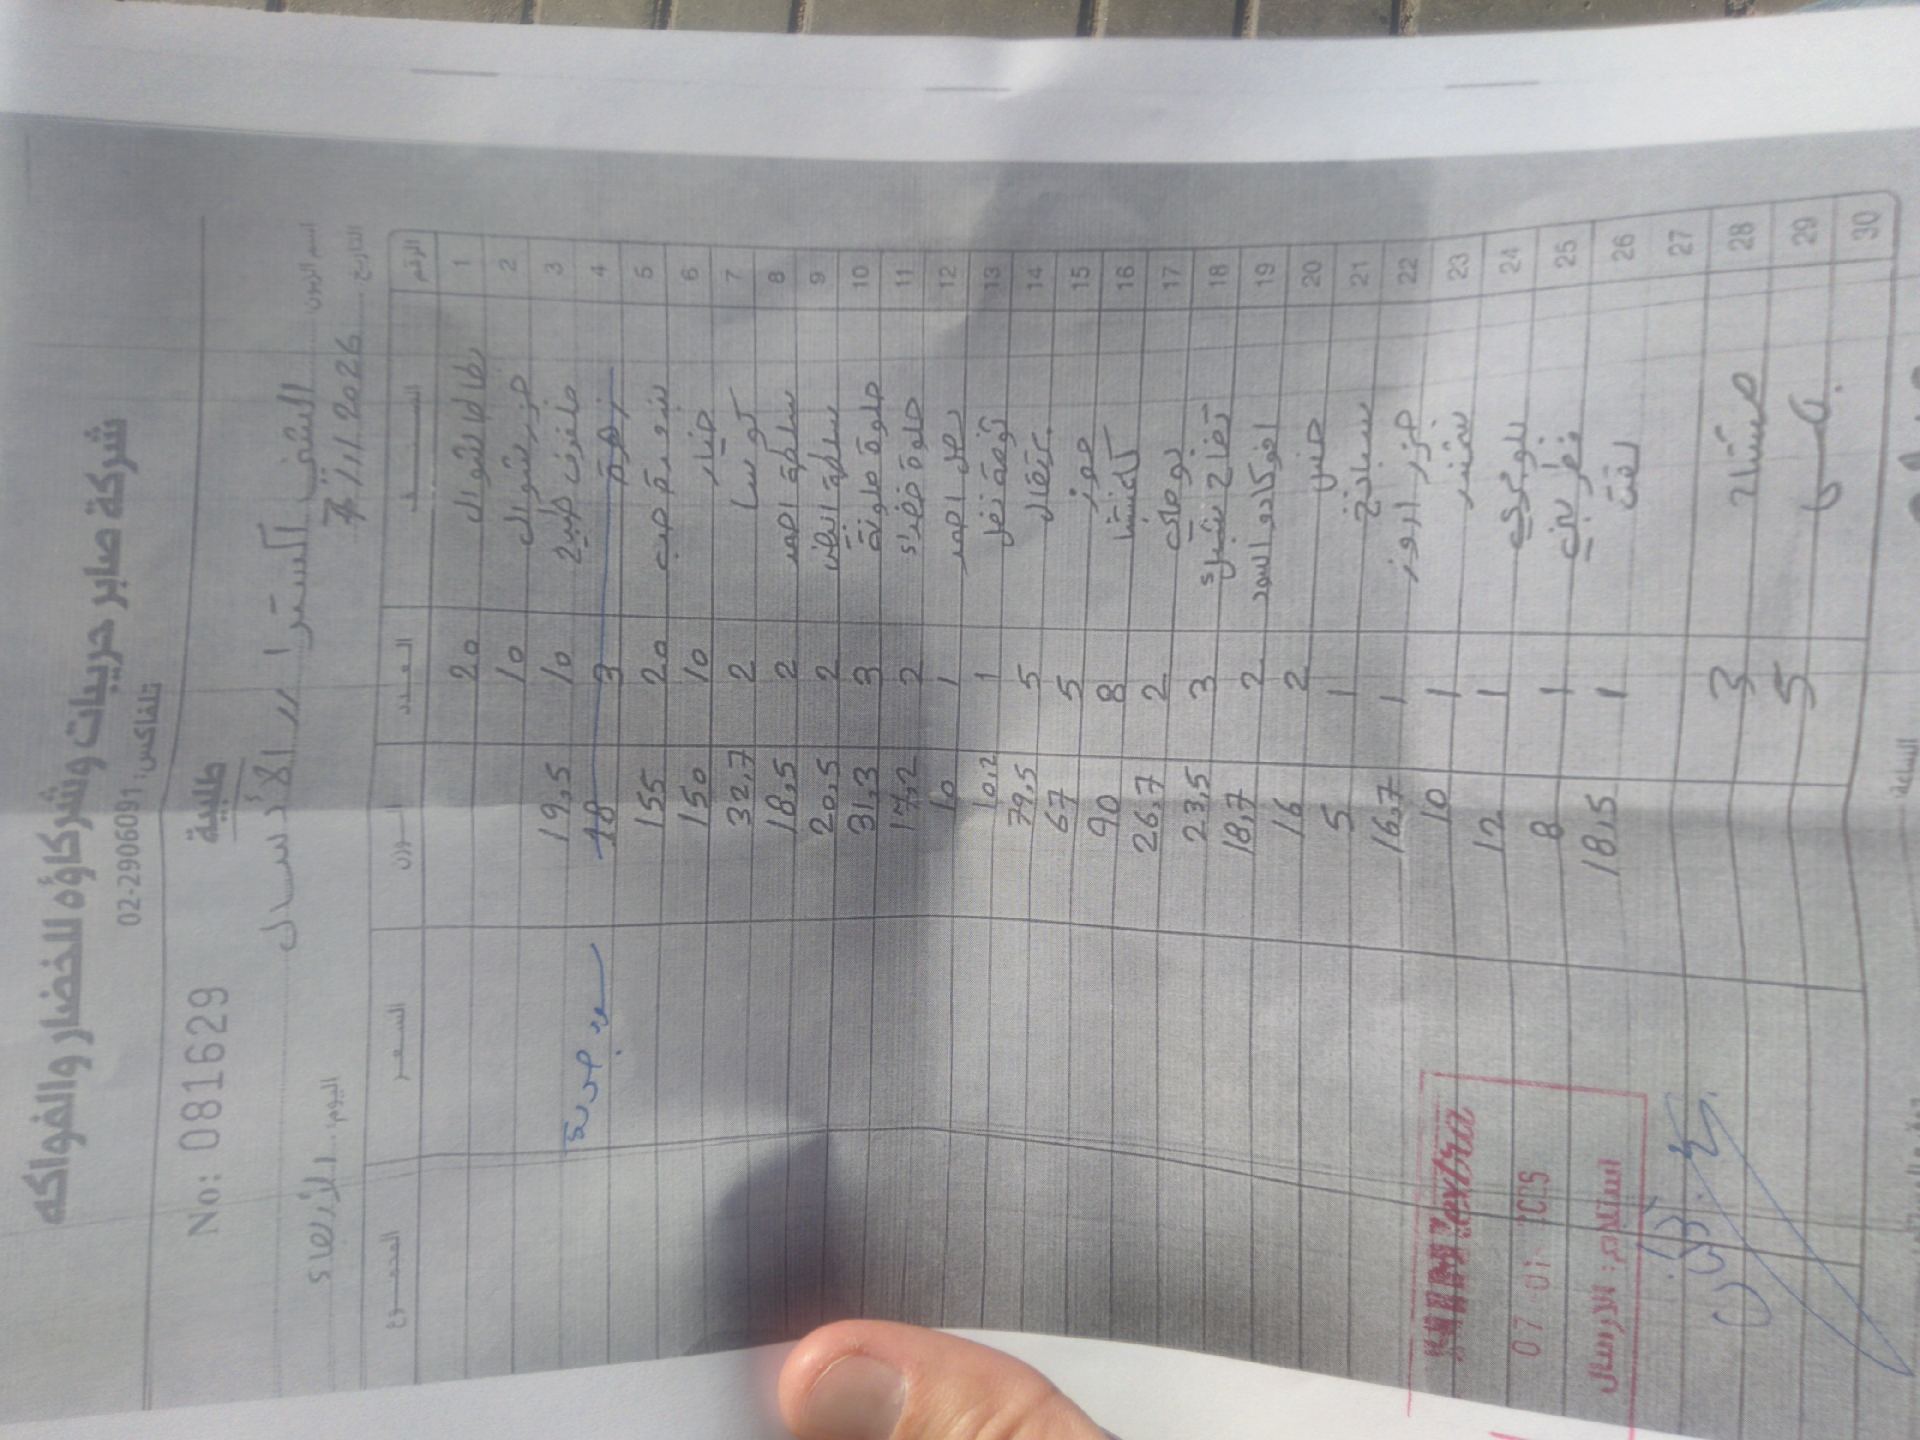 شركة صابر حريبات وشركاؤه للخضار والفواكه
تلفاكس: 02-2906091
طلبية
No: 081629
اسم الزبون الشني اكسترا / الارسال
التاريخ 7/1/2026 اليوم: الأربعاء
الرقم الصنف العدد الوزن السعر المجموع
1 بطاطا شوال 20
2 جزر شوال 10
3 ملفوف 10 19,5
4 زهرة 3 18
5 بندورة حب 20 155
6 خيار 10 150
7 كوسا 2 32,7
8 سلطة احمر 2 18,5
9 سلطة ابيض 2 20,5
10 حلوة ملونة 3 31,3
11 حلوة خضراء 2 17,2
12 بصل احمر 1 10
13 1 10,2
14 برتقال 5 79,5
15 موز 5 67
16 كلمنتينا 8 90
17 بوملي 2 26,7
18 تفاح 3 23,5
19 افوكادو اسود 2 18,7
20 خس 2 16
21 سبانخ 1 5
22 جزر اروز 1 16,7
23 شمندر 1 10
24 بروكلي 1 12
25 فطر بني 1 8
26 لفت 1 18,5
27
28 3
29 5
30
extra
07
استلام: الارسال
الساعة